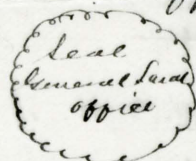 Seal
General Land
office